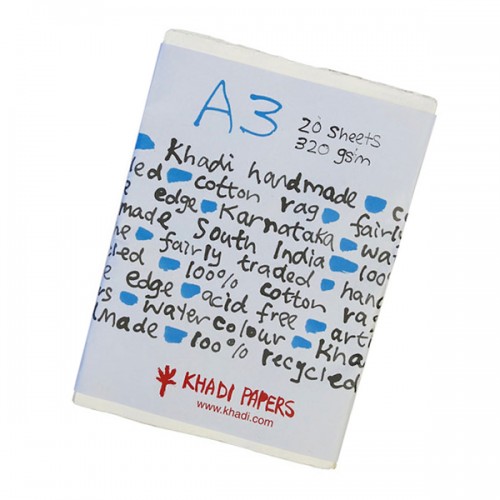 A3
20 sheets
320 gsm
Khadi handmade
cotton rag fairly
edge Karnataka
made South India 100
fairly traded
100% cotton rag
edge acid free
watercolour
made 100% recycled
KHADI PAPERS
www.khadi.com